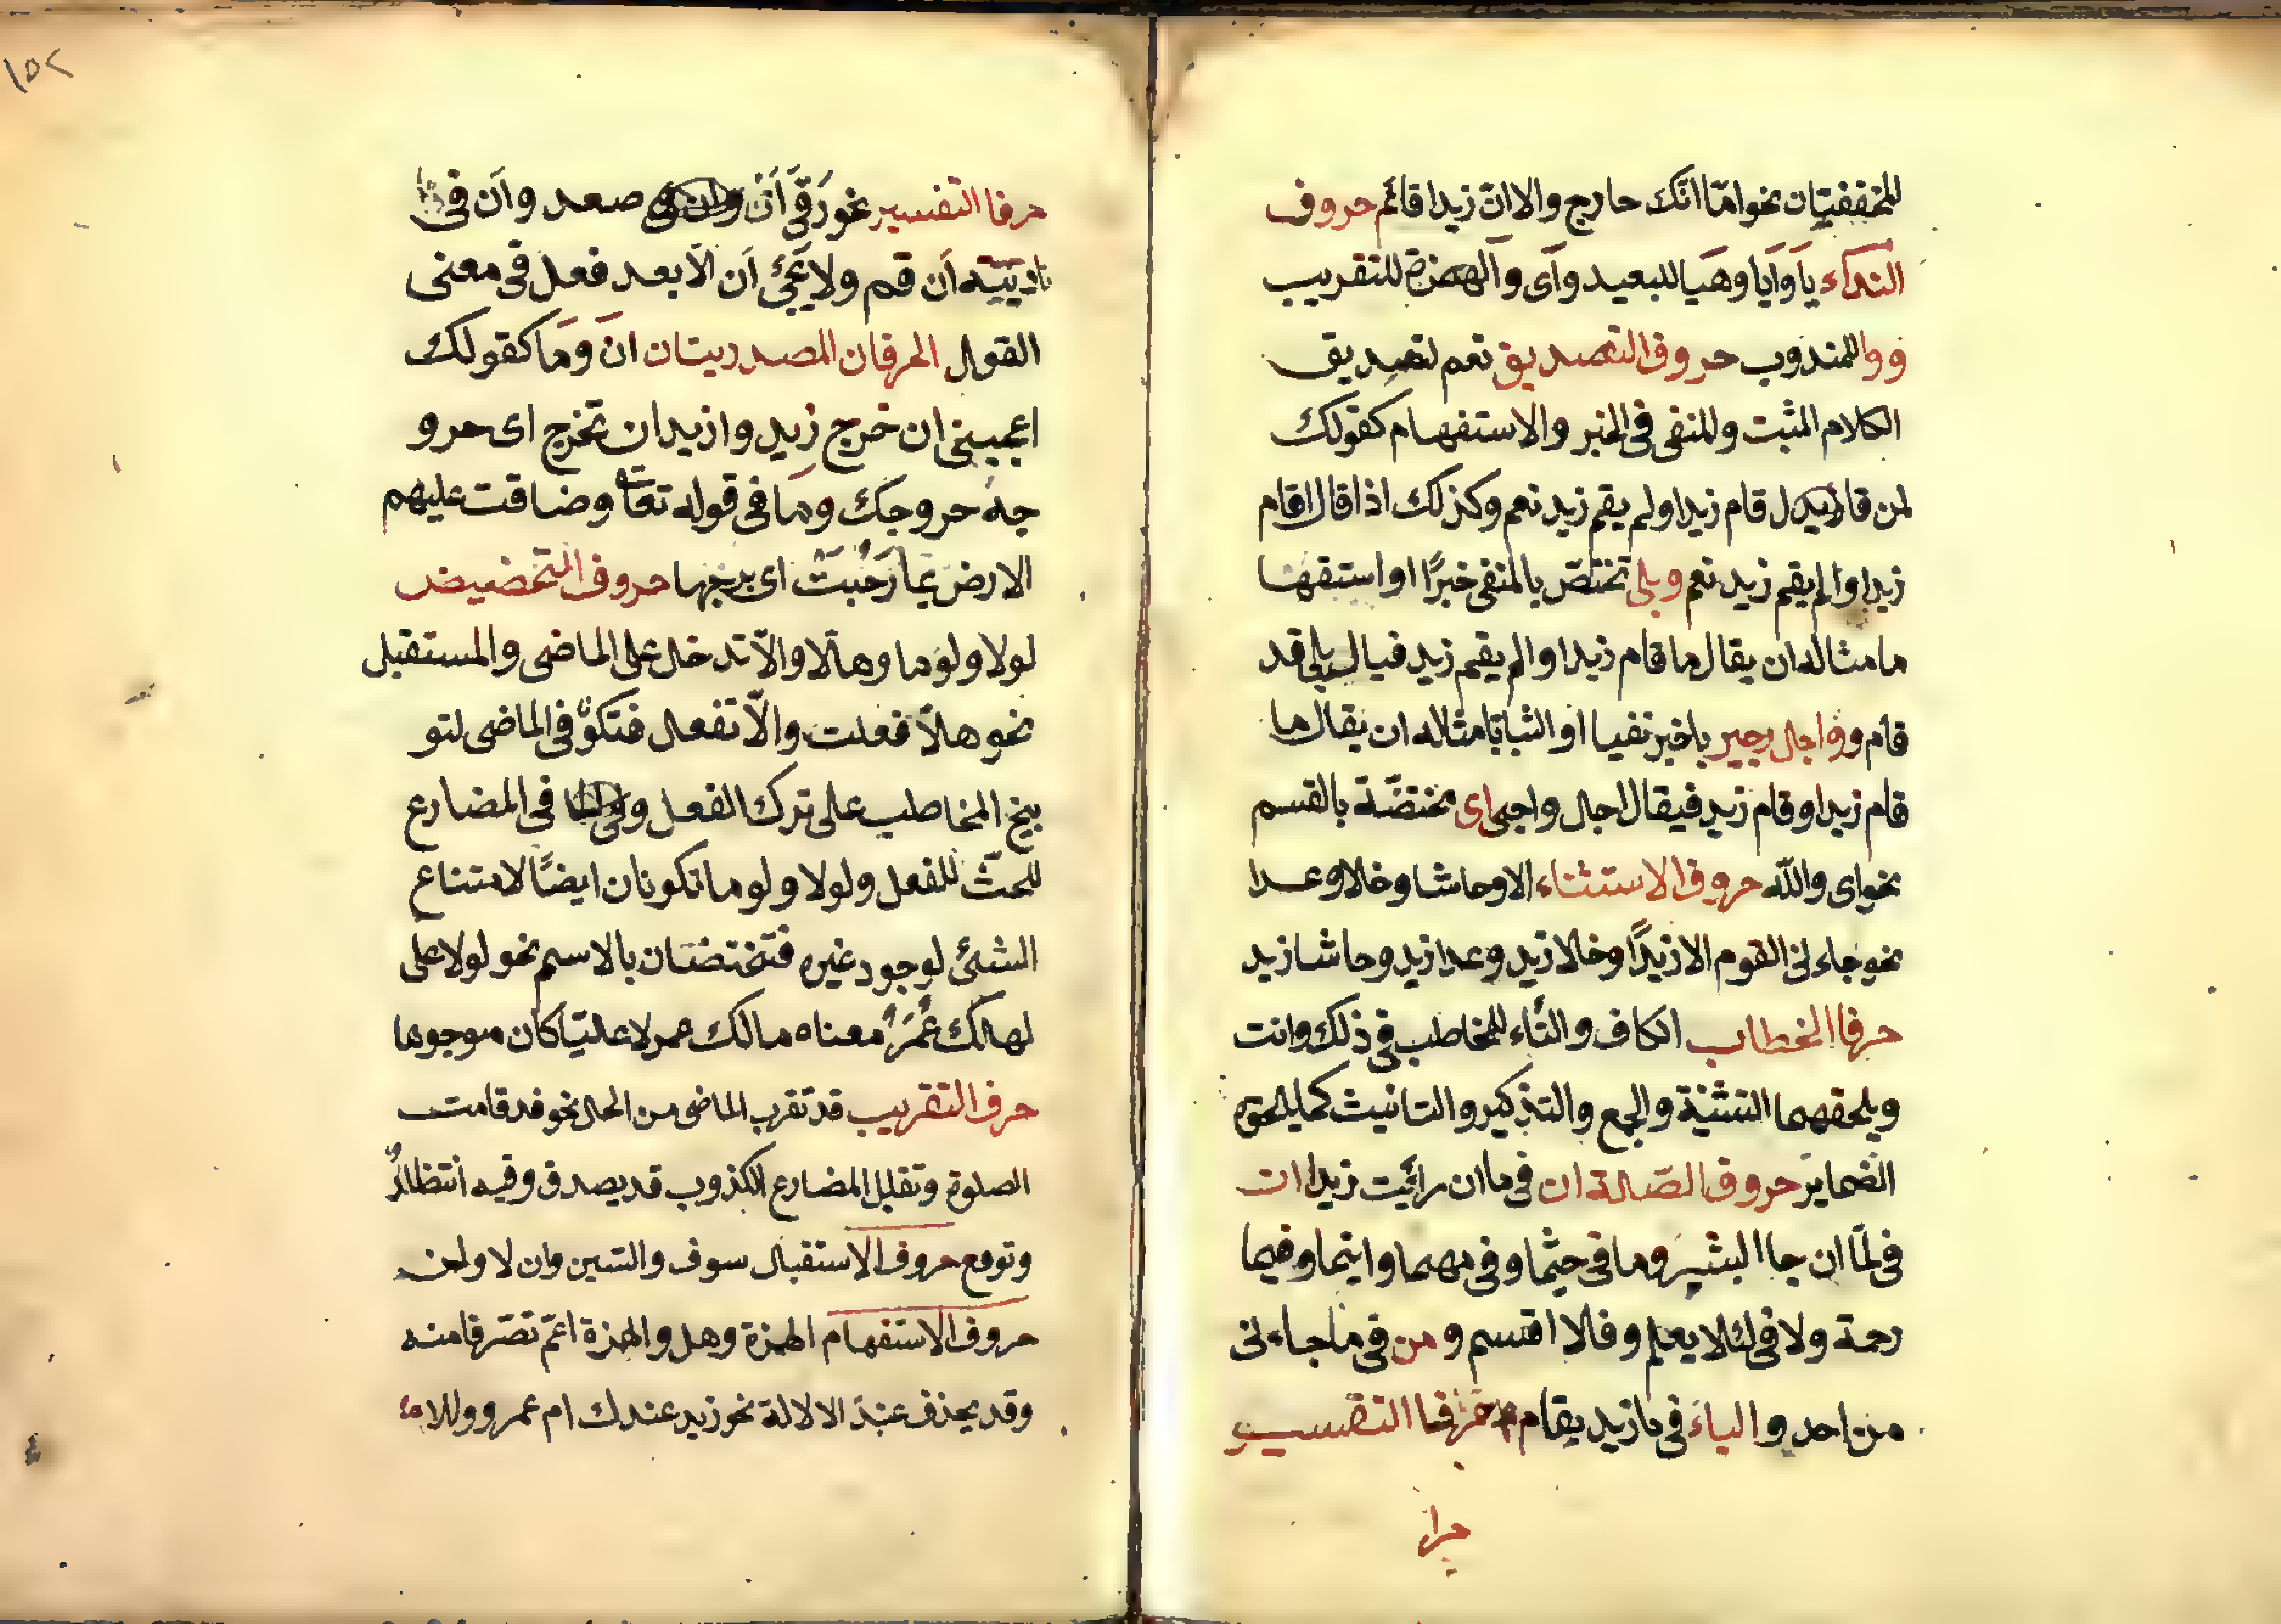 المخففتان نحو اما انك حارج والا ان زيدا قائم حروف
النداء يا وايا وهيا للبعيد وآى والهمزة للتقريب
ووا للمندوب حروف التصديق نعم لتصديق
الكلام المثبت والمنفى فى الخبر والاستفهام كقولك
لمن قال قام زيدا ولم يقم زيد نعم وكذلك اذا قال اقام
زيدا والم يقم زيد نعم وبلى تختصّ بالمنفى خبرًا او استفها
ما مثاله ان يقال ما قام زيدا والم يقم زيد فيال بلى قد
قام واجل وجير باخبر نفيا او اثباتا مثاله ان يقال ما
قام زيدا وقام زيد فيقال اجل واى مختصّة بالقسم
نحو اى والله حروف الاستثناء الا وحاشا وخلا وعدا
نحو جاءنى القوم الا زيدًا وخلا زيد وعدا زيد وحاشا زيد
حرفا الخطاب الكاف والتاء للمخاطب فى ذلك وانت
ويلحقهما التثنية والجمع والتذكير والتانيث كما يلحق
الضماير حروف الصّلة ان فى ما ان رائيت زيدا ان
فى لمّا ان جا البشير وما فى حيثما وفى مهما واينما وفيما
رحمة ولا فى لئلا يعلم وفلا اقسم ومن فى ما جاءنى
من احد والياء فى ما زيد بقام حرفا التفسير
حرفا التفسير نحو رَقَى اَنْ صعد واَن فى
ناديته اَن قم ولا يجئ اَن الّا بعد فعل فى معنى
القول الحرفان المصدريتان انَ ومَا كقولك
اعجبنى ان خرج زيد وازيد ان تخرج اى حرو
جه حروجك ومَا فى قوله تعا وضاقت عليهم
الارض بما رَحُبَتْ اى برحبها حروف التحضيض
لولا ولوما وهلّا والّا تدخل على الماضى والمستقبل
نحو هلّا فعلت والّا تفعل فتكون فى الماضى لتو
بيخ المخاطب على ترك الفعل فى المضارع
للحثّ للفعل ولولا ولوما تكونان ايضًا لامتناع
الشئ لوجود غيره فتختصان بالاسم نحو لولا على
لهلك عُمَرُ معناه ما لك عمر لا عليّا كان موجودا
حرف التقريب قد تقرب الماضى من الحال نحو قد قامت
الصلوة وتقليل المضارع الكذوب قد يصدق وفيه انتظارٌ
وتوقع حروف الاستقبال سوف والسّين وان لا ولن
حروف الاستفهام الهمزة وهل والهمزة اعمّ تصّرفا منه
وقد يحذف عند الالالة نحو زيد عندك ام عمرو